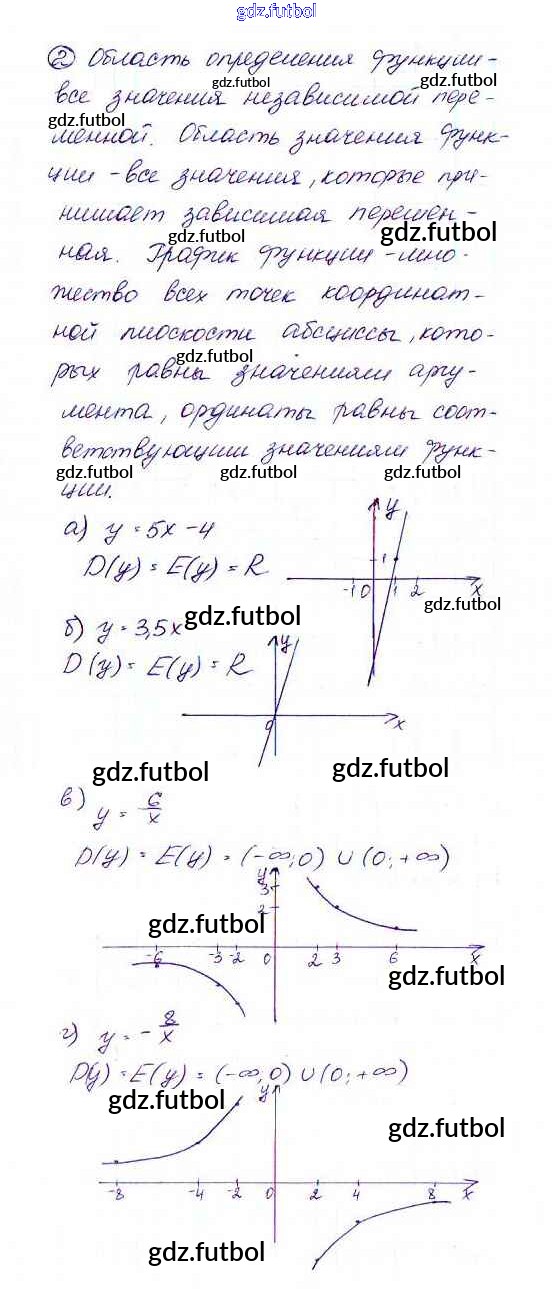 gdz.futbol
② Область определения функции -
gdz.futbol gdz.futbol
все значения независимой пере-
gdz.futbol
менной. Область значения функ-
ции - все значения, которые при-
нимает зависимая перемен-
gdz.futbol gdz.futbol
ная. График функции - мно-
жество всех точек координат-
ной плоскости абсциссы, кото-
gdz.futbol
рых равны значениям аргу-
мента, ординаты равны соот-
ветствующим значениям функ-
gdz.futbol gdz.futbol gdz.futbol
ции.
а) y = 5x - 4
D(y) = E(y) = R
y
1
-1 0 1 2 x
gdz.futbol
б) y = 3,5x
gdz.futbol
D(y) = E(y) = R
y
0 x
gdz.futbol gdz.futbol
в) y = 6/x
D(y) = E(y) = (-∞; 0) ∪ (0; +∞)
y
3
2
gdz.futbol
-6 -3 -2 0 2 3 6 x
gdz.futbol
г) y = - 8/x
D(y) = E(y) = (-∞; 0) ∪ (0; +∞)
gdz.futbol
y
gdz.futbol
-8 -4 -2 0 2 4 8 x
gdz.futbol